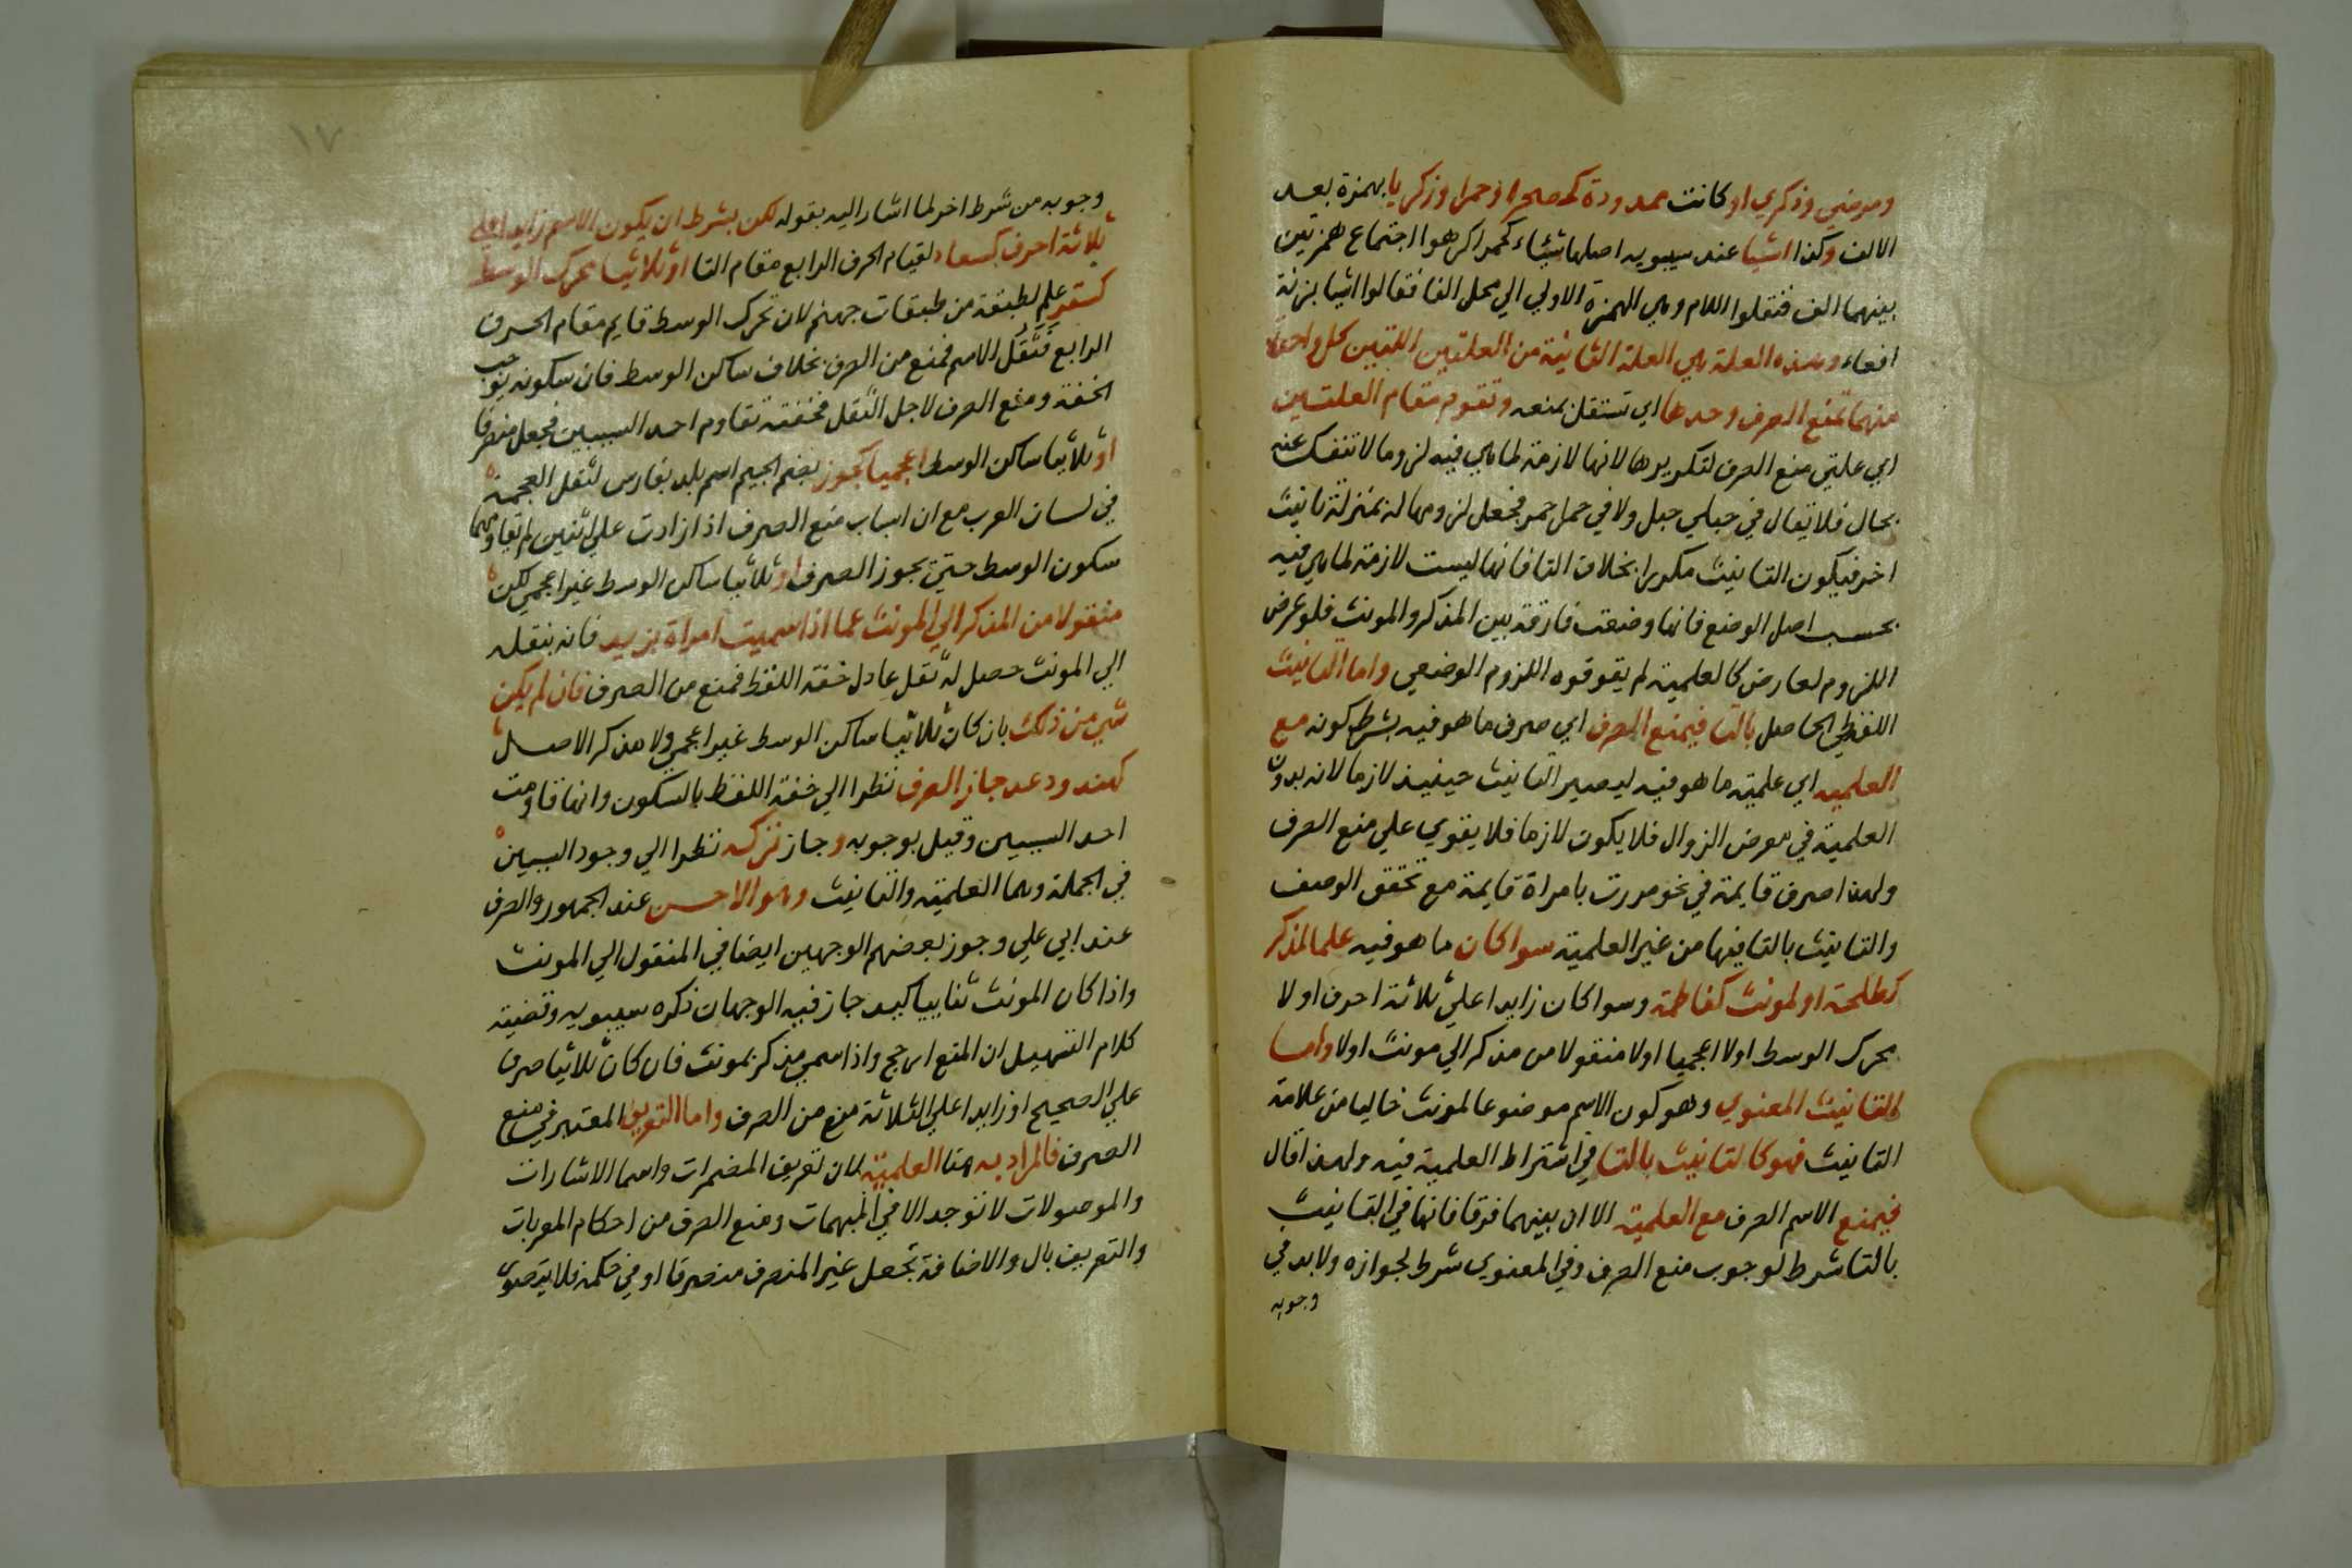 ومرضي وذكري او كانت ممدودة كصحرا وحمرا وزكريا بهمزة بعد
الالف وكذا اشيا عند سيبويه اصلها شيئاء كحمرا كرهوا اجتماع همزتين
بينهما الف فنقلوا اللام وهي الهمزة الاولي الي محل الفا فقالوا اشيا بزنة
لفعاء وهذه العلة هي العلة الثانية من العلتين اللتين كل واحدة
منهما تمنع الصرف وحدها اي تستقل بمنعه وتقوم مقام العلتين
اي علتي منع الصرف لتكريرها لانها لازمة لما هي فيه لزوما لا تنفك عنه
بحال فلا يقال في حبلي حبل ولا في حمرا حمر فجعل لزومها له بمنزلة تانيث
اخر فيكون التانيث مكررا بخلاف التا فانها ليست لازمة لما هي فيه
بحسب اصل الوضع فانها وضعت فارقة بين المذكر والمونث فلو عرض
اللزوم لعارض كالعلمية لم يقو قوه اللزوم الوضعي واما التانيث
اللفظي الحاصل بالتا فيمنع الصرف اي صرف ما هو فيه بشرط كونه مع
العلميه اي علمية ما هو فيه ليصير التانيث حينيذ لازما لانه بدون
العلمية في معرض الزوال فلا يكون لازما فلا يقوي علي منع الصرف
ولهذا صرف قايمة في نحو مررت بامراة قايمة مع تحقق الوصف
والتانيث بالتا فيها من غير العلمية سوا كان ما هو فيه علما لمذكر
كطلحة او لمونث كفاطمة وسوا كان زايدا علي ثلاثة احرف او لا
محرك الوسط اولا اعجميا اولا منقولا من مذكر الي مونث اولا واما
التانيث المعنوي وهو كون الاسم موضوعا لمونث خاليا من علامة
التانيث فهو كالتانيث بالتا في اشتراط العلمية فيه ولهذا قال
فيمنع الاسم الصرف مع العلمية الا ان بينهما فرقا فانها في التانيث
بالتا شرط لوجوب منع الصرف وفي المعنوي شرط لجوازه ولا بد في
وجوبه
١٧
وجوبه من شرط اخر لما اشار اليه بقوله لكن بشرط ان يكون الاسم زايدا علي
ثلاثة احرف كسعاد لقيام الحرف الرابع مقام التا او ثلاثيا محرك الوسط
كسقر علم لطبقة من طبقات جهنم لان تحرك الوسط قايم مقام الحرف
الرابع فثقل الاسم فمنع من الصرف بخلاف ساكن الوسط فان سكونه يوجب
الخفة ومنع الصرف لاجل الثقل فخفته تقاوم احد السببين فجعل منصرفا
او ثلاثيا ساكن الوسط اعجميا كجوز بضم الجيم اسم بلد بفارس لثقل العجمة
في لسان العرب مع ان اسباب منع الصرف اذا زادت علي اثنين لم يقاومها
سكون الوسط حتي يجوز الصرف او ثلاثيا ساكن الوسط غير اعجمي لكن
منقولا من المذكر الي المونث كما اذا سميت امراة بزيد فانه بنقله
الي المونث حصل له ثقل عادل خفة اللفظ فمنع من الصرف فان لم يكن
شي من ذلك بان كان ثلاثيا ساكن الوسط غير اعجمي ولا مذكر الاصل
كهند ودعد جاز الصرف نظرا الي خفة اللفظ بالسكون وانها قاومت
احد السببين وقيل بوجوبه وجاز تركه نظرا الي وجود السببين
في الجملة وهما العلمية والتانيث وهو الاحسن عند الجمهور والصرف
عند ابي علي وجوز بعضهم الوجهين ايضا في المنقول الي المونث
واذا كان المونث ثنائيا كيد جاز فيه الوجهان ذكره سيبويه وقضية
كلام التسهيل ان المنع ارجح واذا سمي مذكر بمونث فان كان ثلاثيا صرف
علي الصحيح او زايدا علي الثلاثة منع من الصرف واما التعريف المعتبر في منع
الصرف فالمراد به هنا العلمية لان تعريف المضمرات واسما الاشارات
والموصولات لا توجد الا في المبهمات ومنع الصرف من احكام المعربات
والتعريف بال والاضافة تجعل غير المنصرف منصرفا او في حكمه فلا يتصور